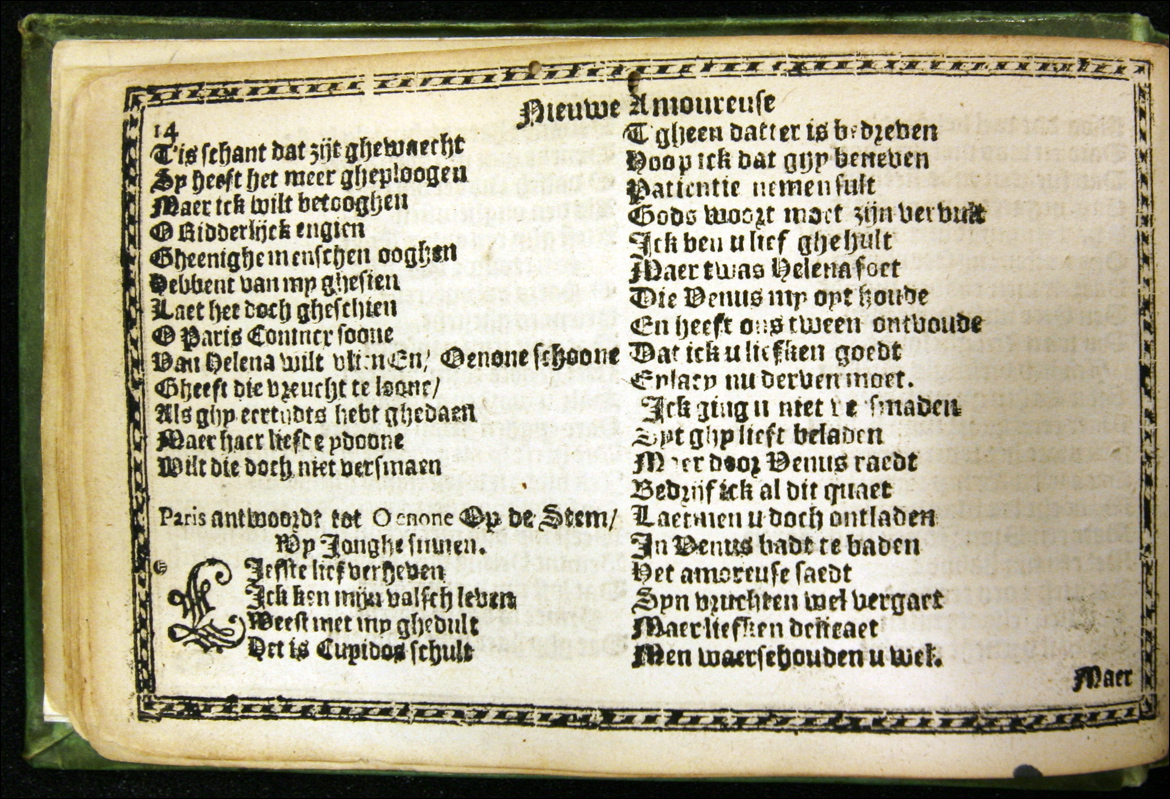 Nieuwe Amoureuse
14
T'is schant dat zijt ghewaecht
Sy heeft het meer gheploogen
Maer ick wilt betooghen
O Ridderlijck engien
Gheenighe menschen ooghen
Hebbent van my ghesien
Laet het doch gheschien
O Paris Conincx soone
Van Helena wilt vlien En/ Oenone schoone
Gheeft die vreucht te loone/
Als ghy eertydts hebt ghedaen
Maer haer liefde ydoone
Wilt die doch niet versmaen
Paris antwoordt tot Oenone Op de Stem/
Wy Jonghe sinnen.
Liefste lief verheven
Ick ken mijn valsch leven
Weest met my ghedult
Het is Cupidos schult
T'gheen datter is bedreven
Hoop ick dat ghy beneven
Patientie nemen sult
Gods woort moet zijn vervult
Ick ben u lief ghehult
Maer twas Helena soet
Die Venus my opt houde
En heeft ons tween ontvoude
Dat ick u liefken goedt
Eylacy nu derven moet.
Ick ging u niet versmaden
Syt ghy lieft beladen
Maer door Venus raedt
Bedrijf ick al dit quaet
Laet men u doch ontladen
In Venus badt te baden
Het amoreuse saedt
Syn vruchten wel vergaet
Maer liefken delicaet
Men waerschouden u wel.
Maer